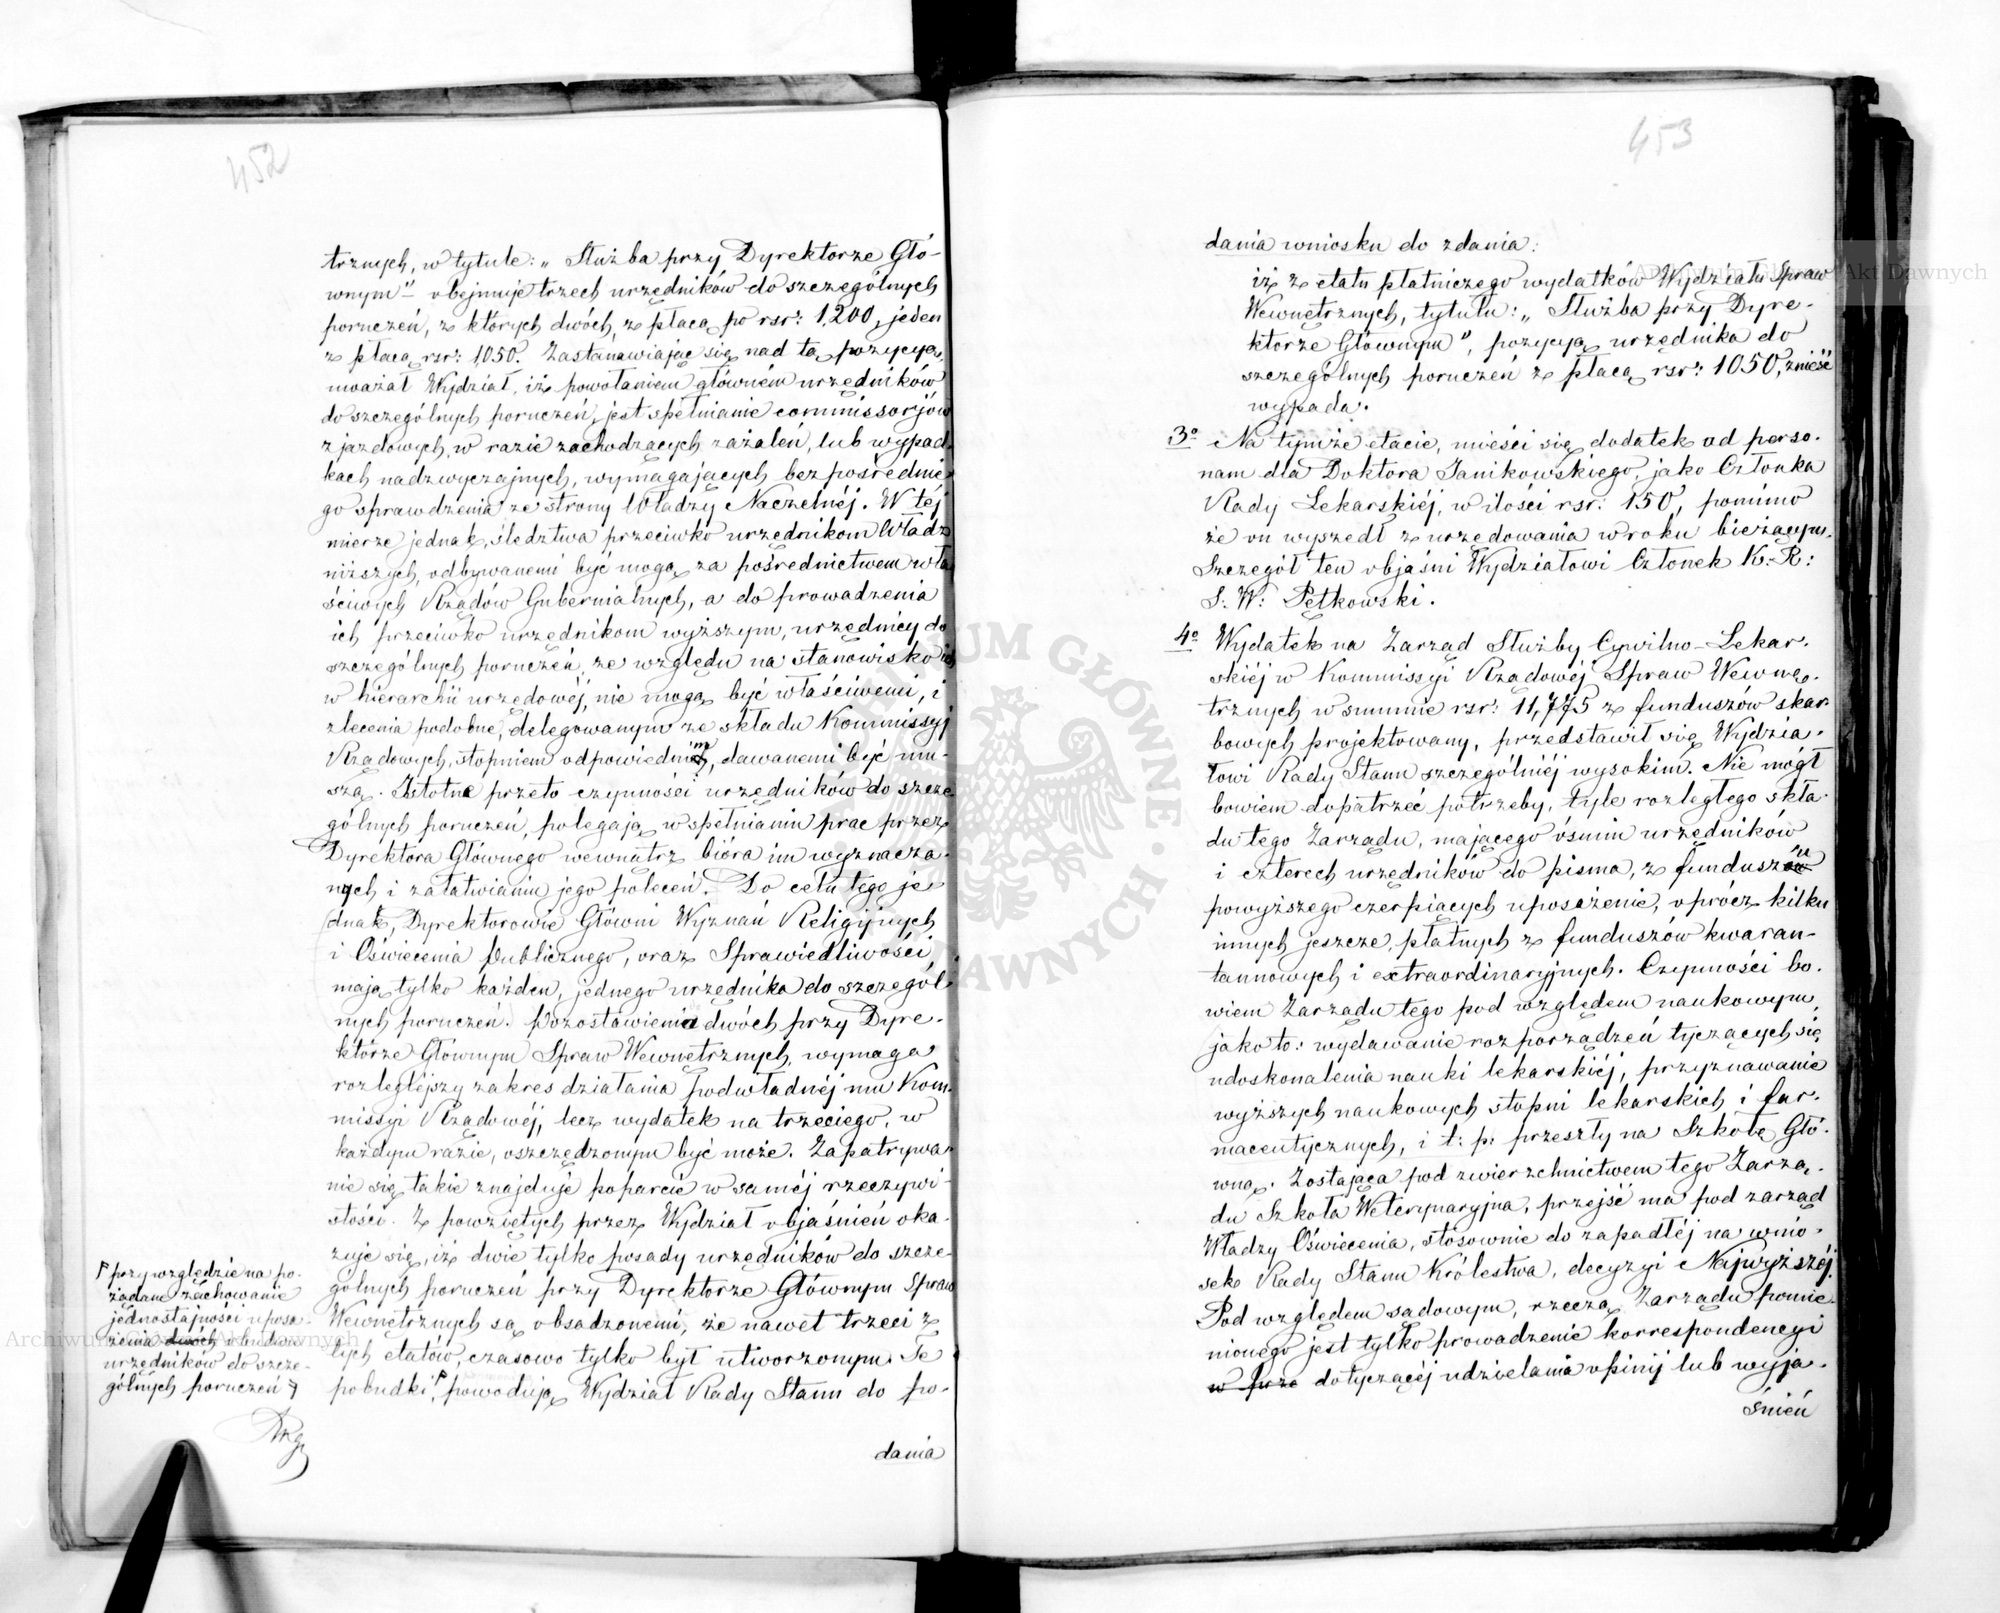 452
trznych, w tytule: „Służba przy Dyrektorze Głó-
wnym" obejmuje trzech urzędników do szczególnych
poruczeń, z których dwóch, z płacą po rsr: 1,200, jeden
z płacą rsr: 1,050. Zastanawiając się nad tą pozycyą,
uważał Wydział, iż powołaniem głównem urzędników
do szczególnych poruczeń, jest spełnianie commissorjów
zjazdowych, w razie zachodzących zażaleń, lub wypad-
kach nadzwyczajnych, wymagających bezpośrednie-
go sprawdzenia ze strony Władzy Naczelnéj. W téj
mierze jednak, śledztwa przeciwko urzędnikom Władz
niższych, odbywanemi być mogą za pośrednictwem wła-
ściwych Rządów Gubernialnych, a do prowadzenia
ich przeciwko urzędnikom wyższym, urzędnicy do
szczególnych poruczeń, ze względu na stanowisko ich
w hierarchii urzędowéj, nie mogą być właściwemi, i
zlecenia podobne, delegowanym ze składu Kommissyj
Rządowych, stopniem odpowiednim, dawanemi być mu-
szą. Istotne przeto czynności urzędników do szcze-
gólnych poruczeń, polegają w spełnianiu prac przez
Dyrektora Głównego wewnątrz bióra im wyznacza-
nych i załatwianiu jego poleceń. Do celu tego je-
dnak, Dyrektorowie Główni Wyznań Religijnych
i Oświecenia Publicznego, oraz Sprawiedliwości,
mają tylko każden, jednego urzędnika do szczegól-
nych poruczeń. Pozostawienie dwóch przy Dyre-
ktorze Głównym Spraw Wewnętrznych, wymaga
rozleglejszy zakres działania podwładnéj mu Kom-
missyi Rządowéj, lecz wydatek na trzeciego, w
każdym razie, oszczędzonym być może. Zapatrywa-
nie się takie znajduje poparcie w saméj rzeczywi-
stości. Z powziętych przez Wydział objaśnień oka-
zuje się, iż dwie tylko posady urzędników do szcze-
gólnych poruczeń przy Dyrektorze Głównym Spraw
Wewnętrznych są obsadzonemi, że nawet trzeci z
tych etatów, czasowo tylko był utworzonym. Te
pobudki, powodują Wydział Rady Stanu do po-
dania
przy względzie na po-
żądane zachowanie
jednostajności uposa-
żenia dwóch obudwu
urzędników do szcze-
gólnych poruczeń
453
dania wniosku do zdania:
iż z etatu płatniczego wydatków Wydziału Spraw
Wewnętrznych, tytułu: „Służba przy Dyre-
ktorze Głównym", pozycyą urzędnika do
szczególnych poruczeń z płacą rsr: 1050, znieść
wypada.
3º Na tymże etacie, mieści się dodatek ad perso-
nam dla Doktora Janikowskiego, jako Członka
Rady Lekarskiéj, w ilości rsr: 150, pomimo
że on wyszedł z urzędowania w roku bieżącym.
Szczegół ten objaśni Wydziałowi Członek K. R:
S: W: Pętkowski.
4º Wydatek na Zarząd Służby Cywilno-Lekar-
skiéj w Kommissyi Rządowéj Spraw Wewnę-
trznych w summie rsr: 11,775 z funduszów skar-
bowych projektowany, przedstawił się Wydzia-
łowi Rady Stanu szczególniéj wysokim. Nie mógł
bowiem dopatrzeć potrzeby, tyle rozległego skła-
du tego Zarządu, mającego ósmiu urzędników
i czterech urzędników do pisma, z funduszu
powyższego czerpiących uposażenie, oprócz kilku
innych jeszcze, płatnych z funduszów kwaran-
tannowych i extraordinaryjnych. Czynności bo-
wiem Zarządu tego pod względem naukowym,
jako to: wydawanie rozporządzeń tyczących się
udoskonalenia nauki lekarskiéj, przyznawanie
wyższych naukowych stopni lekarskich i far-
maceutycznych, i t: p: przeszły na Szkołę Głó-
wną. Zostająca pod zwierzchnictwem tego Zarzą-
du Szkoła Weterynaryjna, przejść ma pod zarząd
Władzy Oświecenia, stosownie do zapadłéj na wnio-
sek Rady Stanu Królestwa, decyzyi Najwyższéj.
Pod względem sądowym, rzeczą Zarządu pomie-
nionego jest tylko prowadzenie korrespondencyi
w prze dotyczącéj udzielania opinij lub wyja-
śnień
Archiwum Główne Akt Dawnych
Archiwum Główne Akt Dawnych
ARCHIWUM GŁÓWNE · AKT DAWNYCH ·